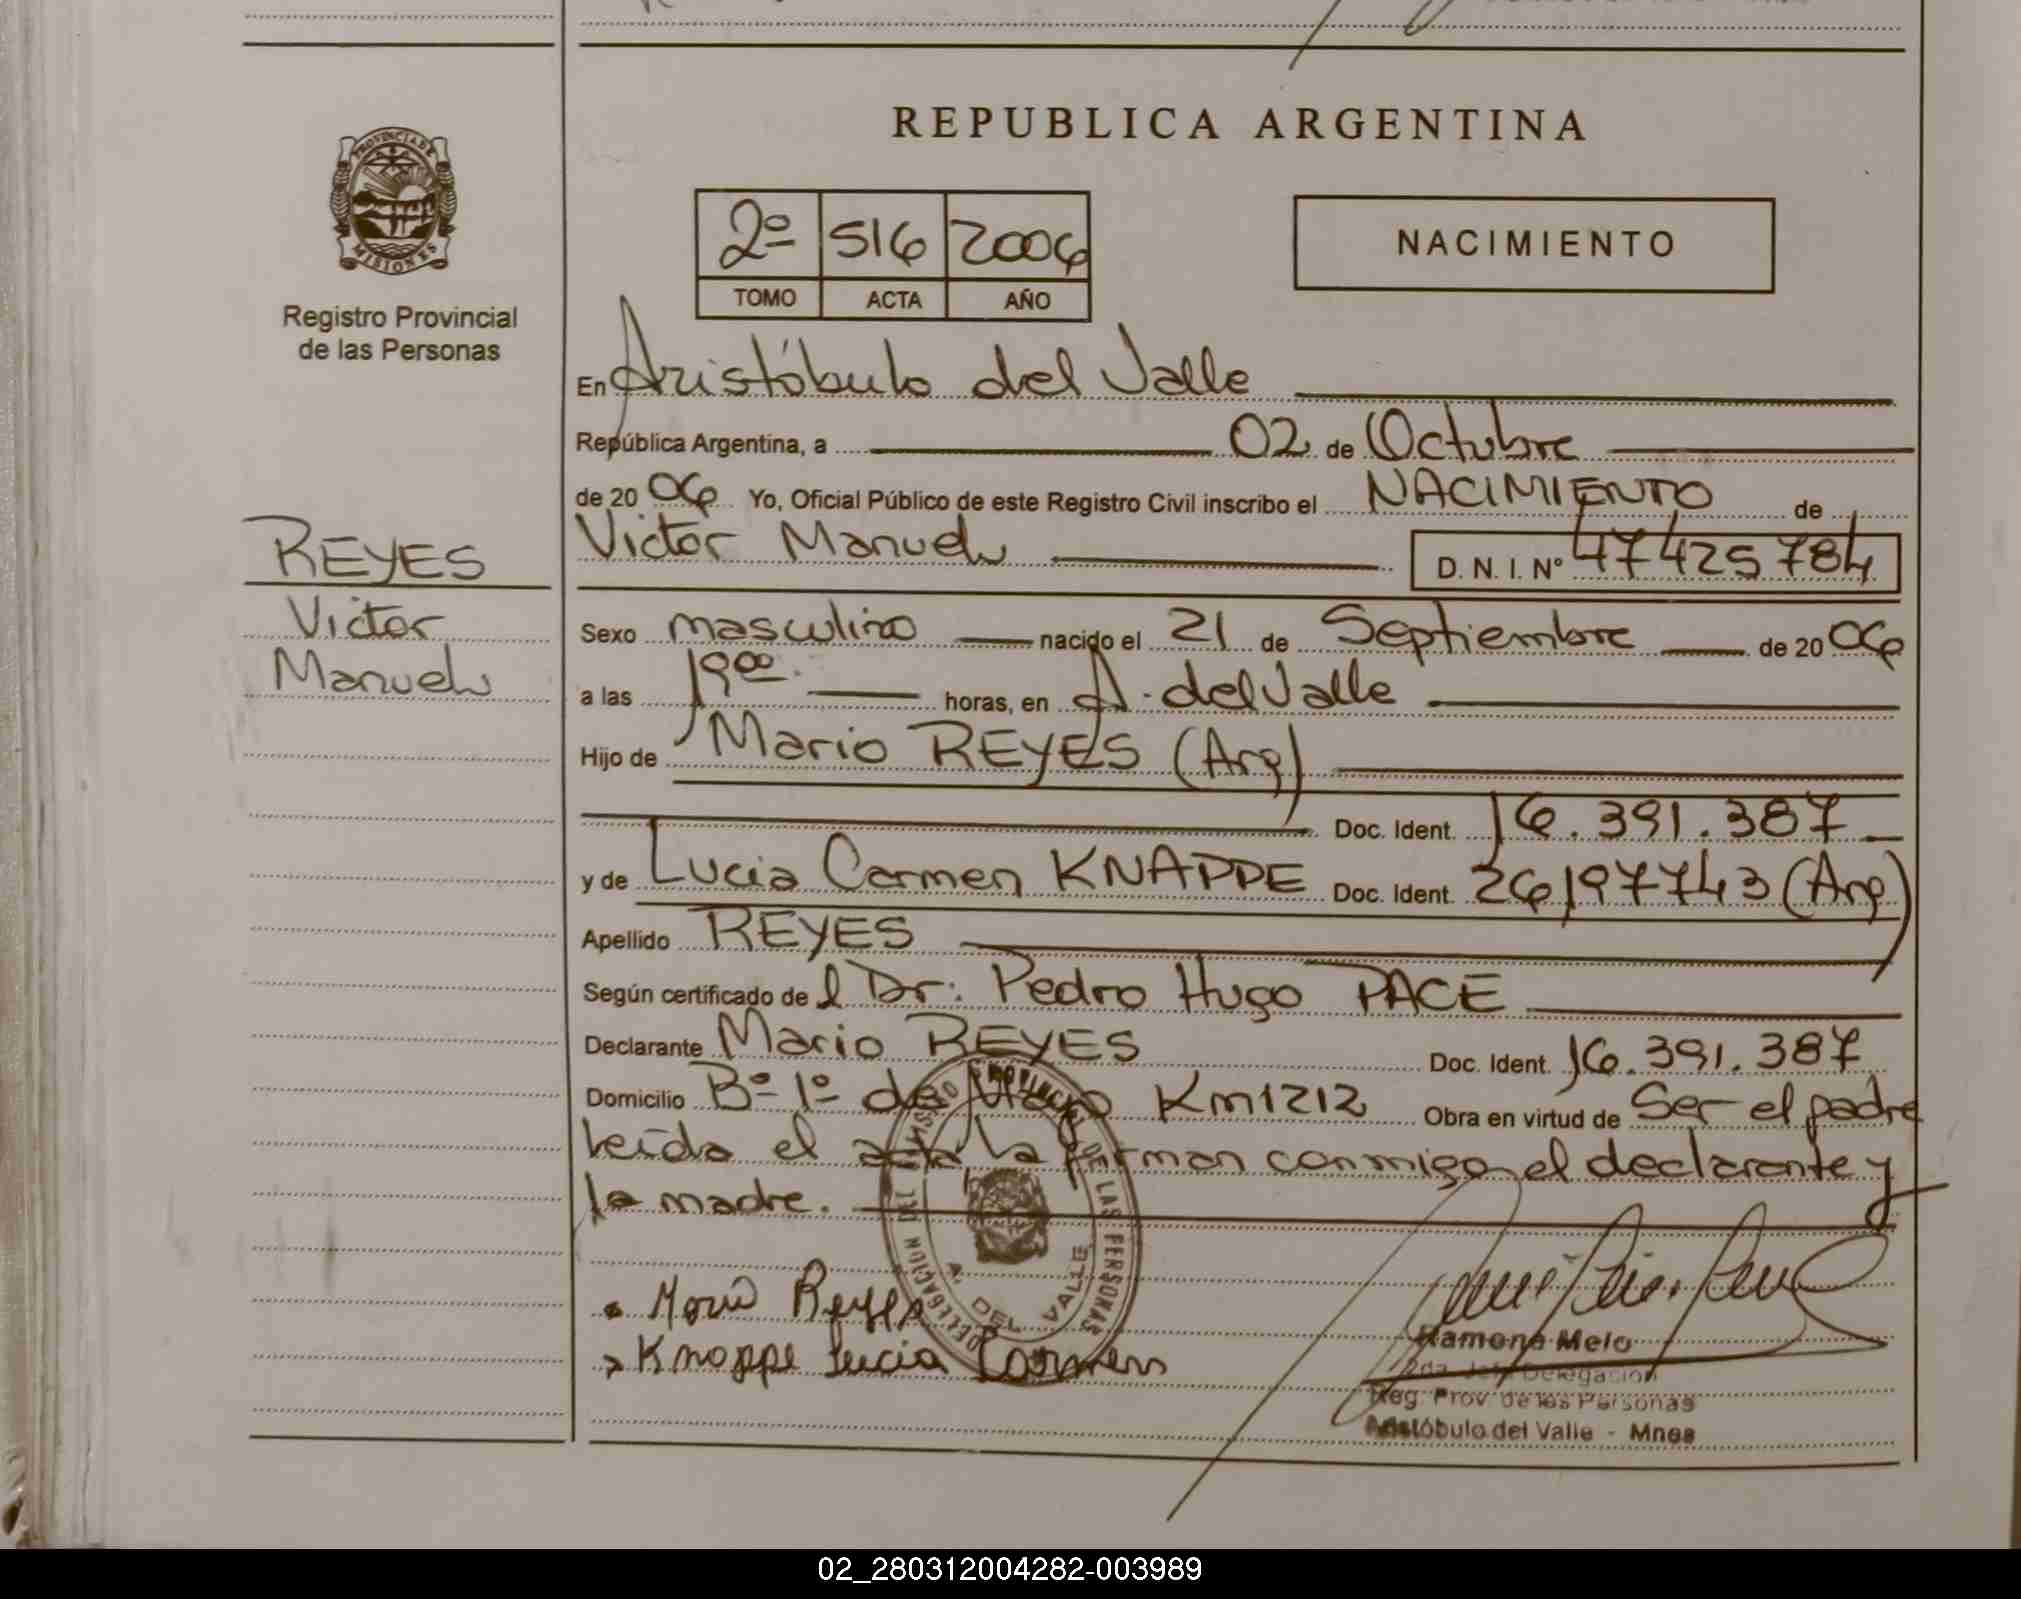 PROVINCIA DE
MISIONES
Registro Provincial
de las Personas
REYES
Victor
Manuel
REPUBLICA ARGENTINA
2º 516 2006
TOMO ACTA AÑO
NACIMIENTO
En Aristóbulo del Valle
República Argentina, a 02 de Octubre
de 20 06 Yo, Oficial Público de este Registro Civil inscribo el NACIMIENTO de
Victor Manuel D. N. I. Nº 47425784
Sexo masculino nacido el 21 de Septiembre de 20 06
a las 19⁰⁰. horas, en A. del Valle
Hijo de Mario REYES (Arg)
Doc. Ident. 16.391.387
y de Lucia Carmen KNAPPE Doc. Ident. 26197743 (Arg)
Apellido REYES
Según certificado de l Dr: Pedro Hugo PACE
Declarante Mario REYES Doc. Ident. 16.391.387
Domicilio Bº 1º de Mayo Km 1212 Obra en virtud de Ser el padre
leída el acta la firman conmigo el declarante y
la madre.
DELEGACION DEL REGISTRO PROVINCIAL DE LAS PERSONAS
A. DEL VALLE
Mario Reyes
Knappe Lucia Carmen
Ramona Melo
2da. Jefa Delegación
Reg. Prov. de las Personas
Aristóbulo del Valle - Mnes
02_280312004282-003989